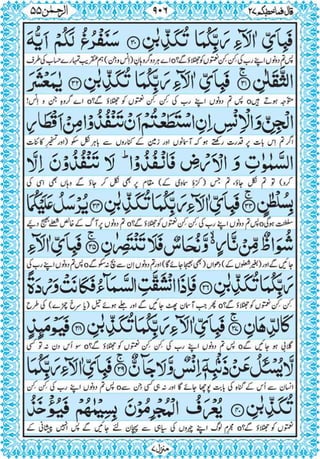 قال فما خطبكم ۲۷ ۹۰۶ الرحمٰن ۵۵
فَبِاَىِّ اٰلَآءِ رَبِّكُمَا تُكَذِّبٰنِ ۝۳۰ سَنَفْرُغُ لَكُمْ اَيُّهَ
پس تم دونوں اپنے رب کی کن کن نعمتوں کو جھٹلاؤ گے؟o اے ہر دو گروہانِ (اِنس و جن)! ہم عنقریب تمہارے حساب کی طرف
الثَّقَلٰنِ ۝۳۱ فَبِاَىِّ اٰلَآءِ رَبِّكُمَا تُكَذِّبٰنِ ۝۳۲ يٰمَعْشَرَ
متوجہ ہوتے ہیںo پس تم دونوں اپنے رب کی کن کن نعمتوں کو جھٹلاؤ گے؟o اے گروہِ جن و اِنس!
الْجِنِّ وَالْاِنْسِ اِنِ اسْتَطَعْتُمْ اَنْ تَنْفُذُوْا مِنْ اَقْطَارِ
اگر تم اس بات پر قدرت رکھتے ہو کہ آسمانوں اور زمین کے کناروں سے باہر نکل سکو (اور تسخیرِ کائنات
السَّمٰوٰتِ وَالْاَرْضِ فَانْفُذُوْا ؕ لَا تَنْفُذُوْنَ اِلَّا
کرو) تو تم نکل جاؤ، تم جس (کرّۂ سماوی کے) مقام پر بھی نکل کر جاؤ گے وہاں بھی اسی کی
بِسُلْطٰنٍ ۝۳۳ فَبِاَىِّ اٰلَآءِ رَبِّكُمَا تُكَذِّبٰنِ ۝۳۴ يُرْسَلُ عَلَيْكُمَا
سلطنت ہوگیo پس تم دونوں اپنے رب کی کن کن نعمتوں کو جھٹلاؤ گے؟o تم دونوں پر آگ کے خالص شعلے بھیج دیئے
شُوَاظٌ مِّنْ نَّارٍ ۙ وَّنُحَاسٌ فَلَا تَنْتَصِرٰنِ ۝۳۵ فَبِاَىِّ اٰلَآءِ
جائیں گے اور (بغیر شعلوں کے) دھواں (بھی بھیجا جائے گا) اور تم دونوں اِن سے بچ نہ سکو گےo پس تم دونوں اپنے رب کی
رَبِّكُمَا تُكَذِّبٰنِ ۝۳۶ فَاِذَا انْشَقَّتِ السَّمَآءُ فَكَانَتْ وَرْدَةً
کن کن نعمتوں کو جھٹلاؤ گے؟o پھر جب آسمان پھٹ جائیں گے اور جلے ہوئے تیل (یا سرخ چمڑے) کی طرح
كَالدِّهَانِ ۝۳۷ فَبِاَىِّ اٰلَآءِ رَبِّكُمَا تُكَذِّبٰنِ ۝۳۸ فَيَوْمَئِذٍ
گلابی ہو جائیں گےo پس تم دونوں اپنے رب کی کن کن نعمتوں کو جھٹلاؤ گے؟o سو اُس دن نہ تو کسی
لَّا يُسْـَٔلُ عَنْ ذَنْۢبِهٖۤ اِنْسٌ وَّلَا جَآنٌّ ۝۳۹ فَبِاَىِّ اٰلَآءِ رَبِّكُمَا
انسان سے اُس کے گناہ کی بابت پوچھا جائے گا اور نہ ہی کسی جن سےo پس تم دونوں اپنے رب کی کن کن
تُكَذِّبٰنِ ۝۴۰ يُعْرَفُ الْمُجْرِمُوْنَ بِسِيْمٰهُمْ فَيُؤْخَذُ
نعمتوں کو جھٹلاؤ گے؟o مجرم لوگ اپنے چہروں کی سیاہی سے پہچان لئے جائیں گے پس انہیں پیشانی کے
منزل ۷